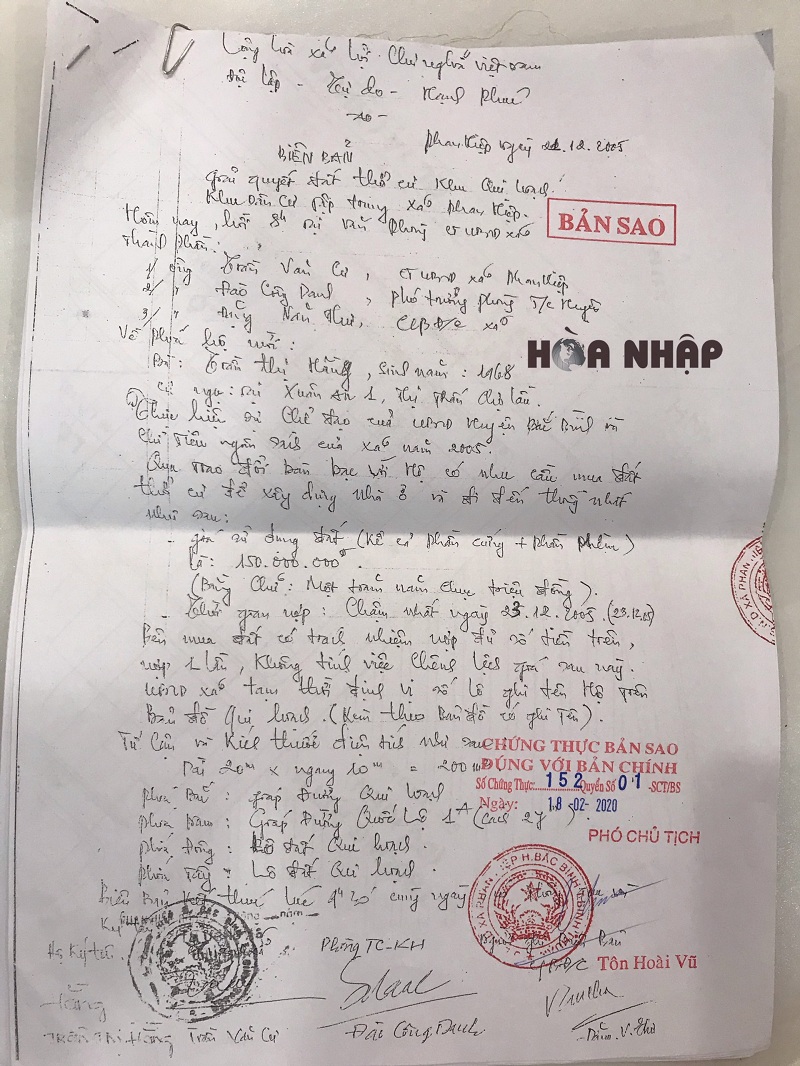 Cộng hoà xã hội Chủ nghĩa Việt Nam
Độc lập - Tự do - Hạnh Phúc
Phan Hiệp ngày 22.12.2005
BIÊN BẢN
Giải quyết đất thổ cư Khu Qui hoạch
Khu Dân Cư tập trung xã Phan Hiệp.
BẢN SAO
Hôm nay, hồi 8h tại văn phòng UBND xã
Thành phần:
1/ ông Trần Văn Cư, CT UBND xã Phan Hiệp
2/ " Đào Công Danh, Phó trưởng phòng T/c huyện
3/ " Đặng Thư, CCB Đ/c xã
HÒA NHẬP
Về phía hộ mời:
Bà: Trần Thị Hằng, sinh năm: 1968
cư ngụ: tại Xuân An 1, Thị Trấn Chợ Lầu.
Thực hiện sự chỉ đạo của UBND huyện Bắc Bình và
chỉ tiêu ngân sách của xã năm 2005.
Qua trao đổi bàn bạc với Hộ có nhu cầu mua đất
thổ cư để xây dựng nhà ở và đi đến thống nhất
như sau:
- giá sử dụng đất (Kể cả phần cứng + phần mềm)
là: 150.000.000đ.
(Bằng chữ: Một trăm năm chục triệu đồng).
Thời gian nộp: Chậm nhất ngày 23.12.2005. (23.12.05)
Bên mua đất có trách nhiệm nộp đủ số tiền trên,
nộp 1 lần, không tính việc chênh lệch giá sau này.
UBND xã tạm thời định vị số lô ghi tên Hộ trên
Bản đồ Qui hoạch. (Kèm theo Bản đồ có ghi Tên).
Tứ Cận và Kích thước diện tích như sau
CHỨNG THỰC BẢN SAO
ĐÚNG VỚI BẢN CHÍNH
Dài 20m x ngang 10m = 200m
Số Chứng Thực: 152 Quyển Số 01 -SCT/BS
Ngày: 18-02-2020
phía Bắc: giáp Đường Qui hoạch
phía Nam: Giáp Đường Quốc Lộ 1A (cách 27)
PHÓ CHỦ TỊCH
phía Đông: Lô đất Qui hoạch.
phía Tây: Lô đất Qui hoạch.
Biên Bản kết thúc lúc 9h30 cùng ngày
Phòng TC-KH
Tôn Hoài Vũ
Hằng
Trần Thị Hằng
Trần Văn Cư
Đào Công Danh